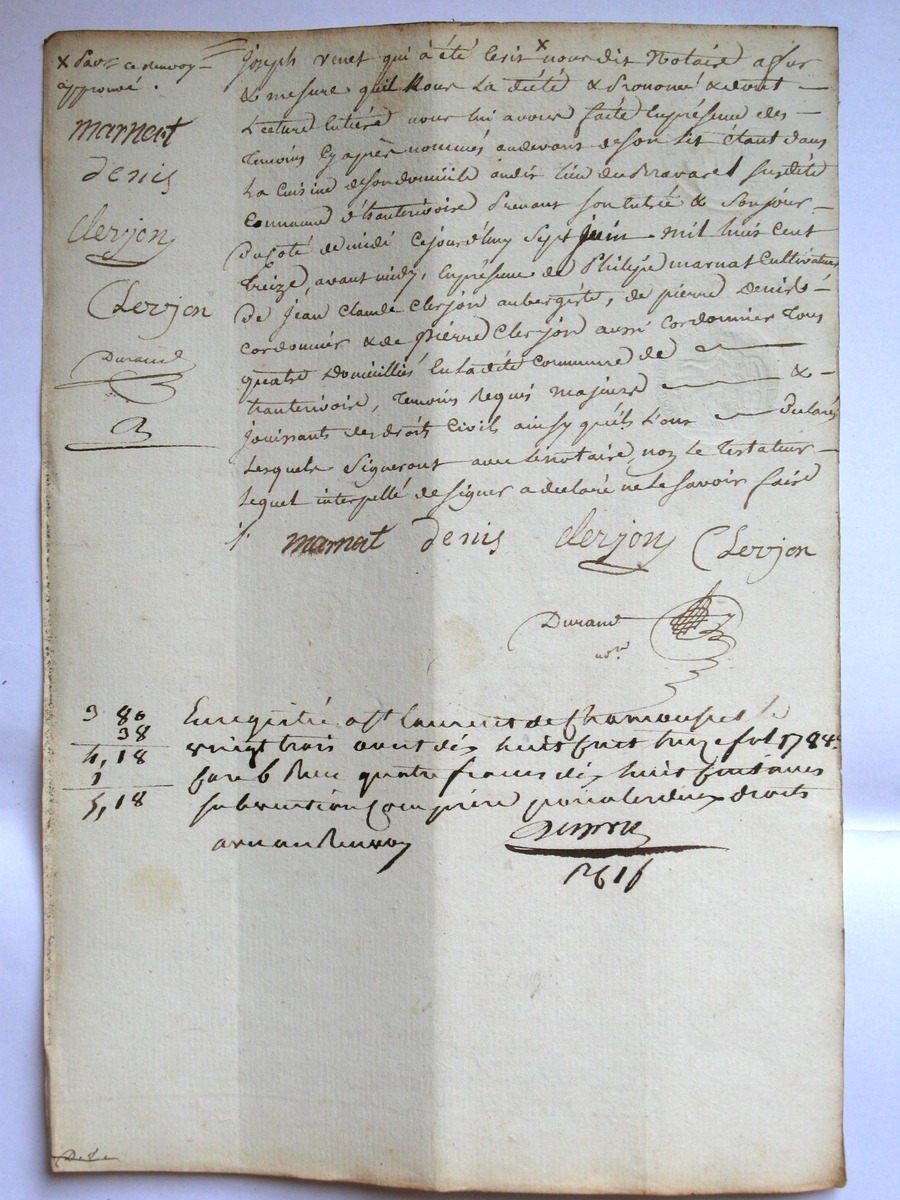 x Par ce renvoy
approuvé.
marnat
denis
Clerjon
Clerjon
Durand
Joseph venet qui à été écrit x nous dit Notaire a fur
& mesure quil Nous La dicté & Prononcé & dont
Lecture Entiere nous lui avons faite En présence des
Temoins Cy après nommés audevant de son Lit étant dans
La Cuisine de son domicile audit Lieu du Bravaret susdite
Commune d'hauterivoire Prenant son Entrée & Son jour
Du Coté de midi Cejourd'huy Sept juin mil huit Cent
treize, avant midy, En présence de Philipe marnat Cultivateur
De jean Claude Clerjon aubergiste, de pierre denis
Cordonnier & de pierre Clerjon aussi Cordonnier Tous
quatre Domiciliés En La dite Commune de
hauterivoire, Temoins Requis majeurs &
jouissants des droits Civils ainsy quils L'ont Declaré
Lesquels Signeront avec Le notaire, non Le Testateur
Lequel interpellé de signer a declaré ne Le savoir faire
marnat denis Clerjon Clerjon
Durand
no.re
3 80
38
4,18
1
5,18
Enregistré a St Laurent de Chamousset le
vingt trois aout dix huit cent treize fol 178
Case 6 Reçu quatre francs dix huit Centimes
subvention Comprise pour les deux droits
avec un Renvoy